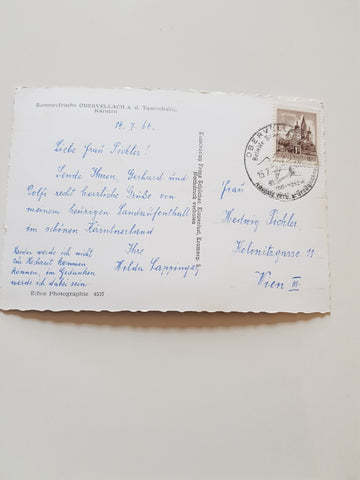 Sommerfrische OBERVELLACH a. d. Tauernbahn,
Kärnten
14. 7. 61.
Liebe Frau Pichler!
Sende Ihnen, Gerhard und
Dolfi recht herzliche Grüße von
meinem heurigen Landaufenthalt
im schönen Kärntnerland
Ihre
Hilda
Leider werde ich nicht
zur Hochzeit kommen
können, im Gedanken
werde ich dabei sein
Echte Photographie 4537
Kunstverlag Franz Schilcher, Klagenfurt
Nachdruck verboten
OBERVELL
15.7.
Frau
Hedwig Pichler
Kolonitzgasse 11
Wien III.